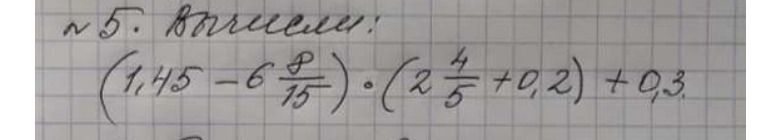 №5. Вычисли:
(1,45 - 6 8/15) · (2 4/5 + 0,2) + 0,3.